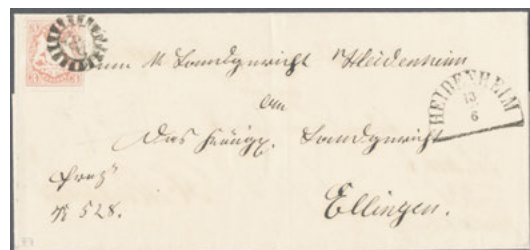 Landgericht Heidenheim
HEIDENHEIM
13
6
an
Das Königl. Landgericht
№ 528.
Ellingen.